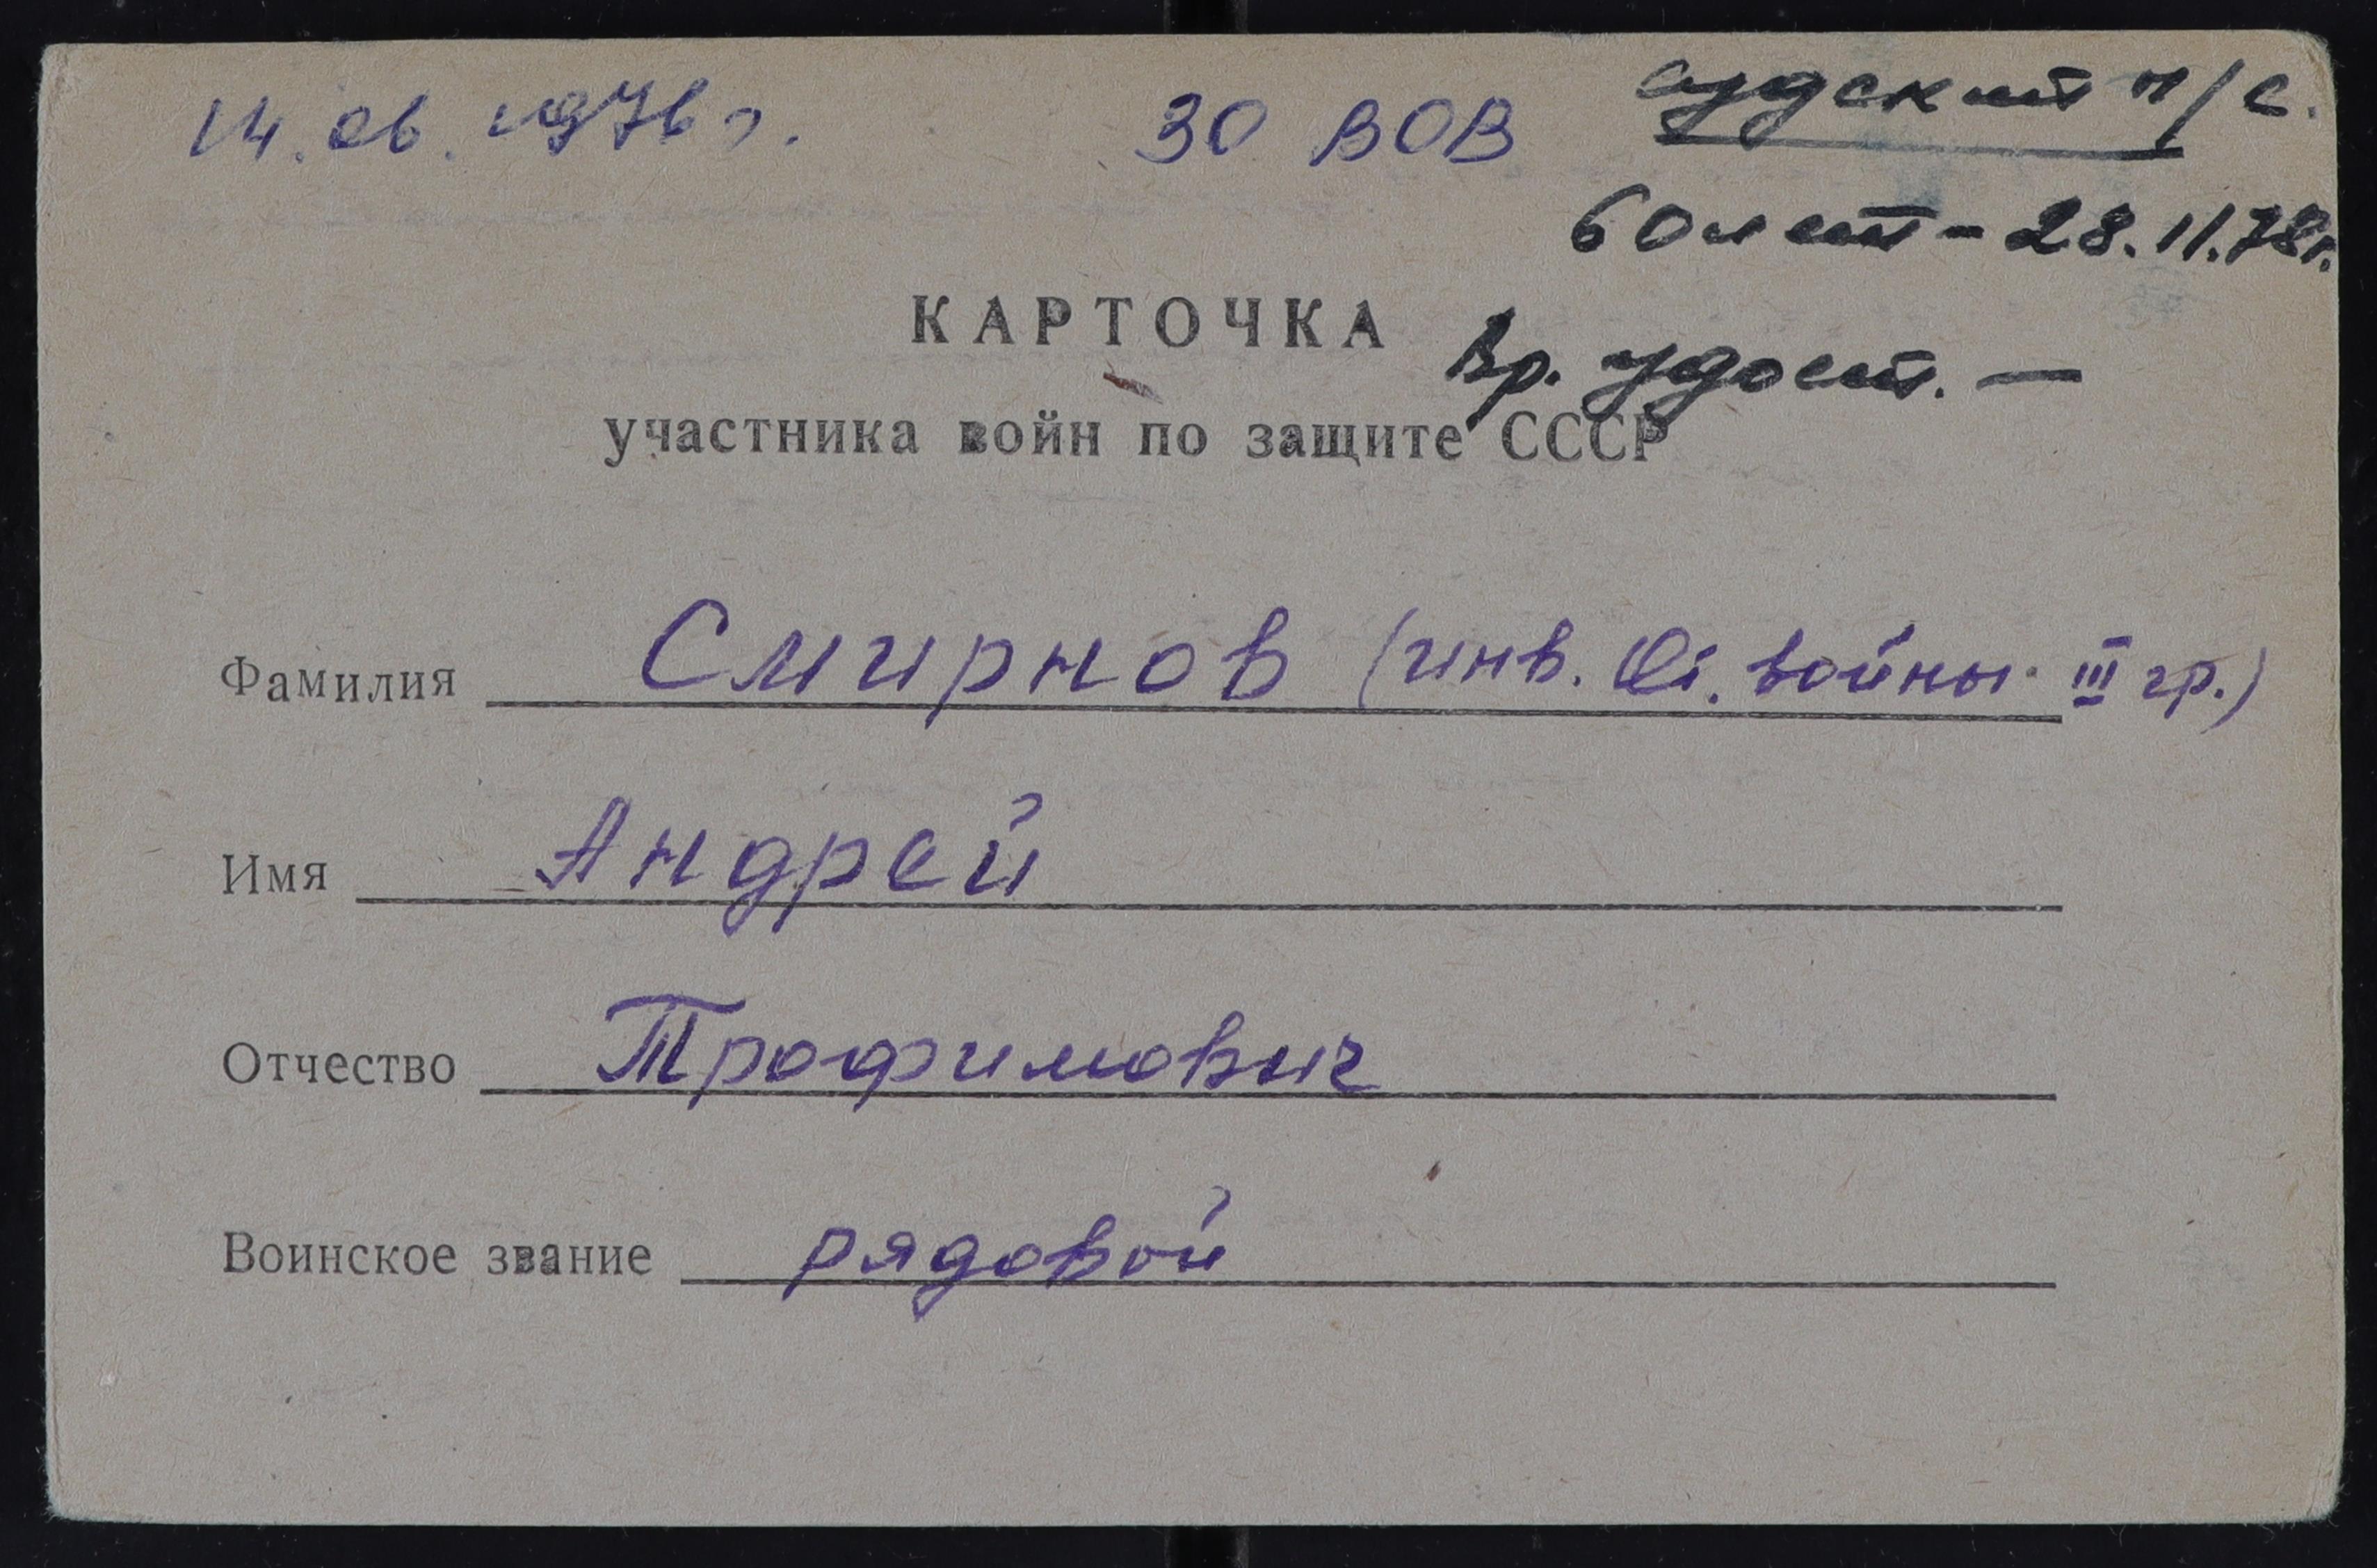 14.06.1976 г. 30 ВОВ
Аудский п/с.
60 лет - 28.11.78г.
КАРТОЧКА
Вр. удост. —
участника войн по защите СССР
Фамилия Смирнов (инв. От. войны III гр.)
Имя Андрей
Отчество Трофимович
Воинское звание рядовой